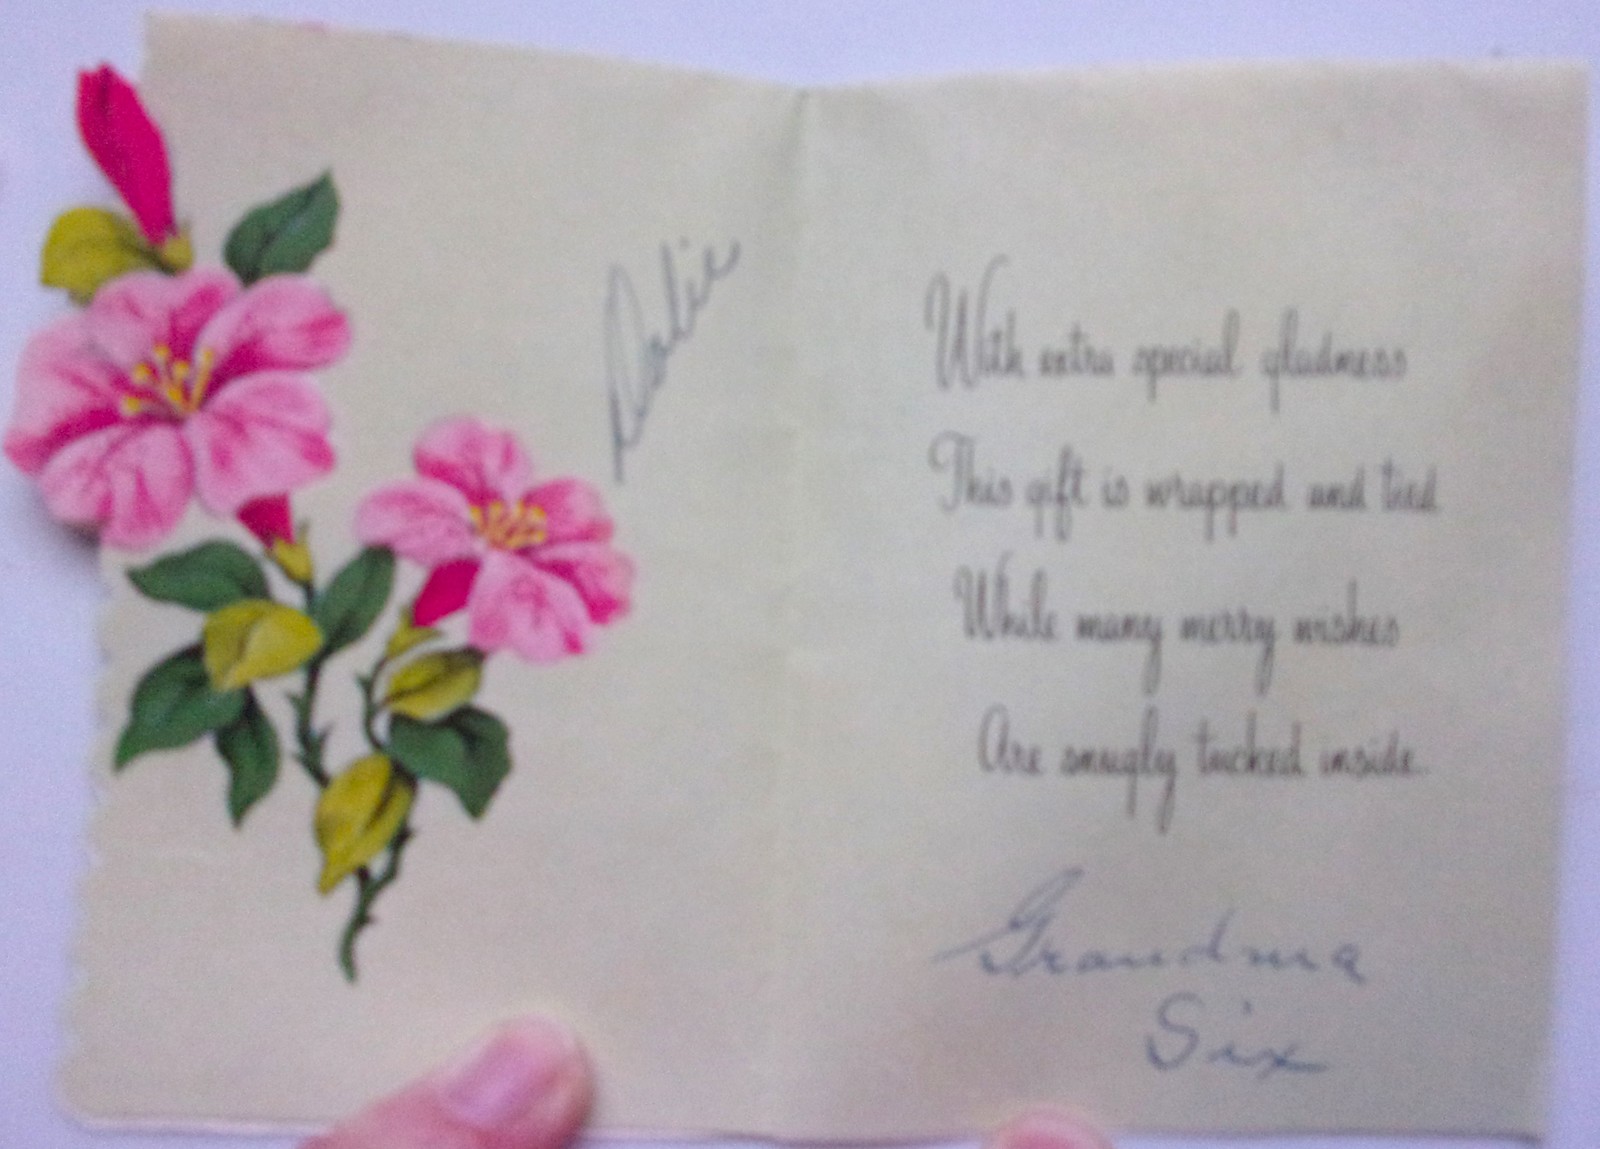 With extra special gladness
This gift is wrapped and tied
While many merry wishes
Are snugly tucked inside.
Grandma
Six